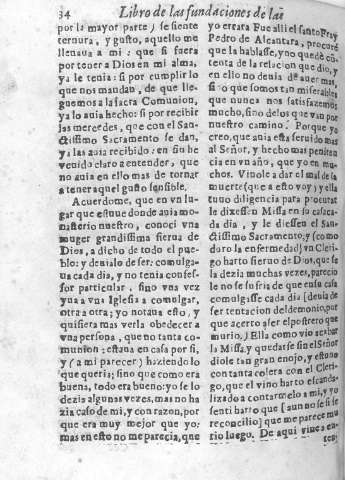 34 Libro de las fundaciones de las
por la mayor parte) se siente
ternura, y gusto, aquello me
lleuaua a mi: que si fuera
por tener a Dios en mi alma,
ya le tenia: si por cumplir lo
que nos mandan, de que lle-
guemos a la sacra Comunion,
ya lo auia hecho: si por recibir
las mercedes, que con el San-
ctissimo Sacramento se dan,
ya las auia recibido: en fin he
venido claro a entender, que
no auia en ello mas de tornar
a tener aquel gusto sensible.
Acuerdome, que en vn lu-
gar que estuue donde auia mo-
nasterio nuestro, conoci vna
muger grandissima sierua de
Dios, a dicho de todo el pue-
blo: y deuialo de ser: comulga-
ua cada dia, y no tenia confes-
sor particular, sino vna vez
yua a vna Iglesia a comulgar,
otra a otra; yo notaua esto, y
quisiera mas verla obedecer a
vna persona, que no tanta co-
munion: estaua en casa por si,
y (a mi parecer) haziendo lo
que queria; sino que como era
buena, todo era bueno: yo se lo
dezia algunas vezes, mas no ha
zia caso de mi, y con razon, por
que era muy mejor que yo:
mas en esto no me parecia, que
yo errara Fue alli el santo Fray
Pedro de Alcantara, procurè
que la hablasse, y no quedè cõ-
tenta de la relacion que dio, y
en ello no deuia de auer mas,
si no que somos tan miserables
que nunca nos satisfazemos
mucho, sino de los que van por
nuestro camino. Porque yo
creo, que auia esta seruido mas
al Señor, y hecho mas peniten
cia en vn año, que yo en mu-
chos. Vinole a dar el mal de la
muerte (que a esto voy) y ella
tuuo diligencia para procurar
le dixessen Missa en su casa ca-
da dia, y le diessen el San-
ctissimo Sacramento; y (como
duro la enfermedad) vn Cleri-
go harto sieruo de Dios, que se
la dezia muchas vezes, parecio
le no se sufria de que en su casa
comulgasse cada dia (deuia de
ser tentacion del demonio, por
que acerto a ser el postrero que
murio.) Ella como vio acabar
la Missa, y quedarse sin el Señor
diole tan gran enojo, y estuuo
con tanta colera con el Clerigo,
que el vino harto escanda
lizado a contarmelo a mi, y yo
senti harto que (aun no se si se
reconcilio) que me parece mu
rio luego. De aqui vine a en-